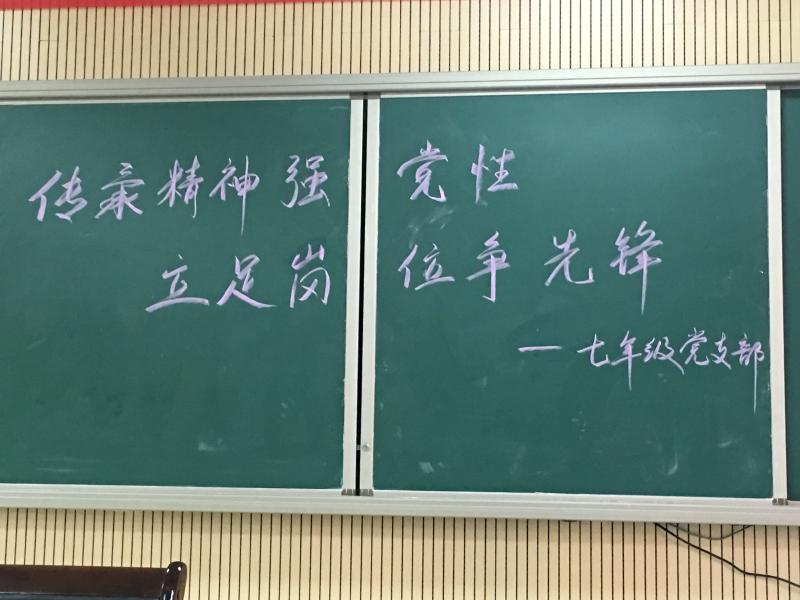 传承精神强党性
立足岗位争先锋
—七年级党支部